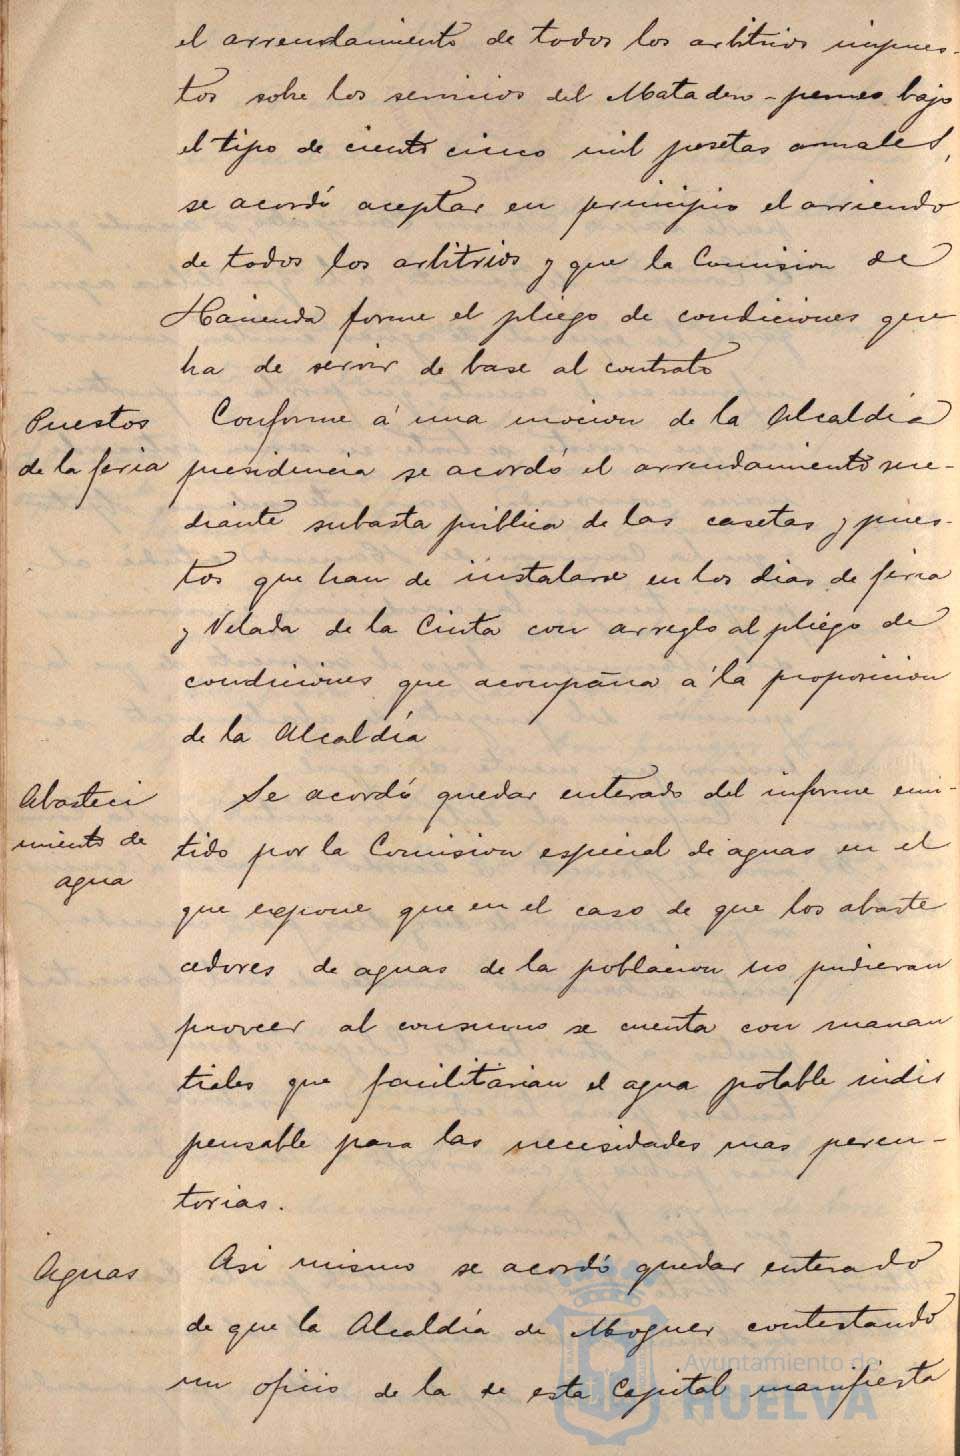 el arrendamiento de todos los arbitrios impues-
tos sobre los servicios del Matadero - bajo
el tipo de ciento cinco mil pesetas anuales,
se acordó aceptar en principio el arriendo
de todos los arbitrios y que la Comision de
Hacienda forme el pliego de condiciones que
ha de servir de base al contrato
Puestos
de la feria
Conforme á una mocion de la Alcaldia
presidencia se acordó el arrendamiento me-
diante subasta pública de las casetas y pues-
tos que han de instalarse en los dias de feria
y Velada de la Cinta con arreglo al pliego de
condiciones que acompaña á la proposicion
de la Alcaldía
Abasteci
miento de
agua
Se acordó quedar enterado del informe emi-
tido por la Comision especial de aguas en el
que expone que en el caso de que los abaste
cedores de aguas de la poblacion no pudieran
proveer al consumo se cuenta con manan
tiales que facilitarian el agua potable indis
pensable para las necesidades mas peren-
torias.
Aguas
Asi mismo se acordó quedar enterado
de que la Alcaldía de Moguer contestando
un oficio de la de esta Capital manifiesta
Ayuntamiento de
HUELVA